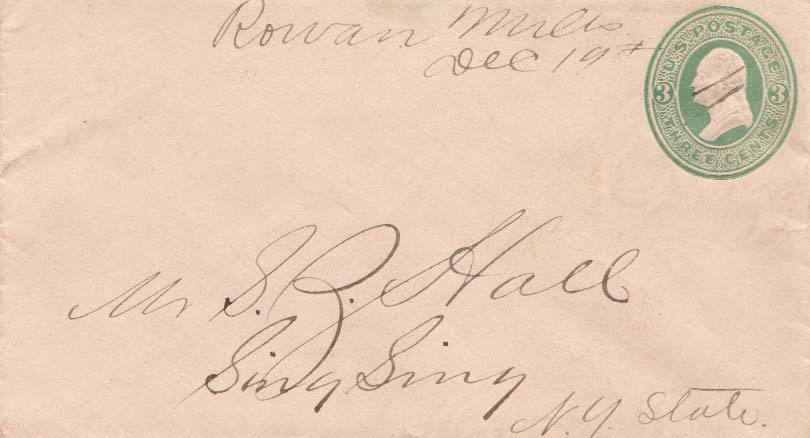 Rowan Mills
Dec 19th
U.S. POSTAGE
3 3
THREE CENTS
Mr S. R. Hall
Sing Sing
N.Y. State.